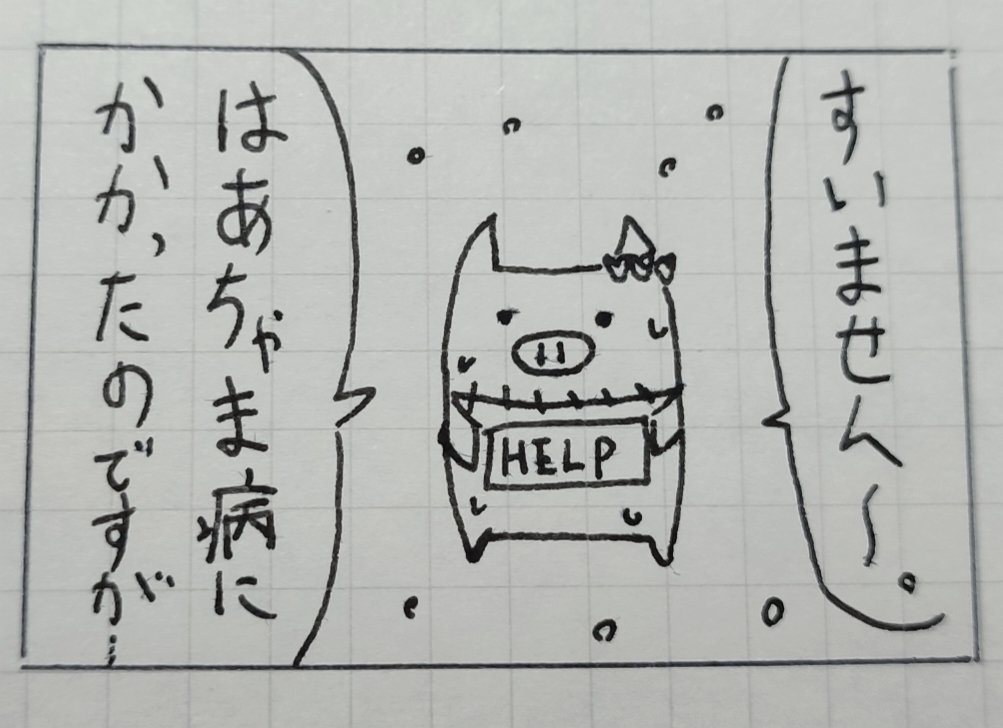 すいません〜
HELP
はあちゃま病に
かかったのですが…